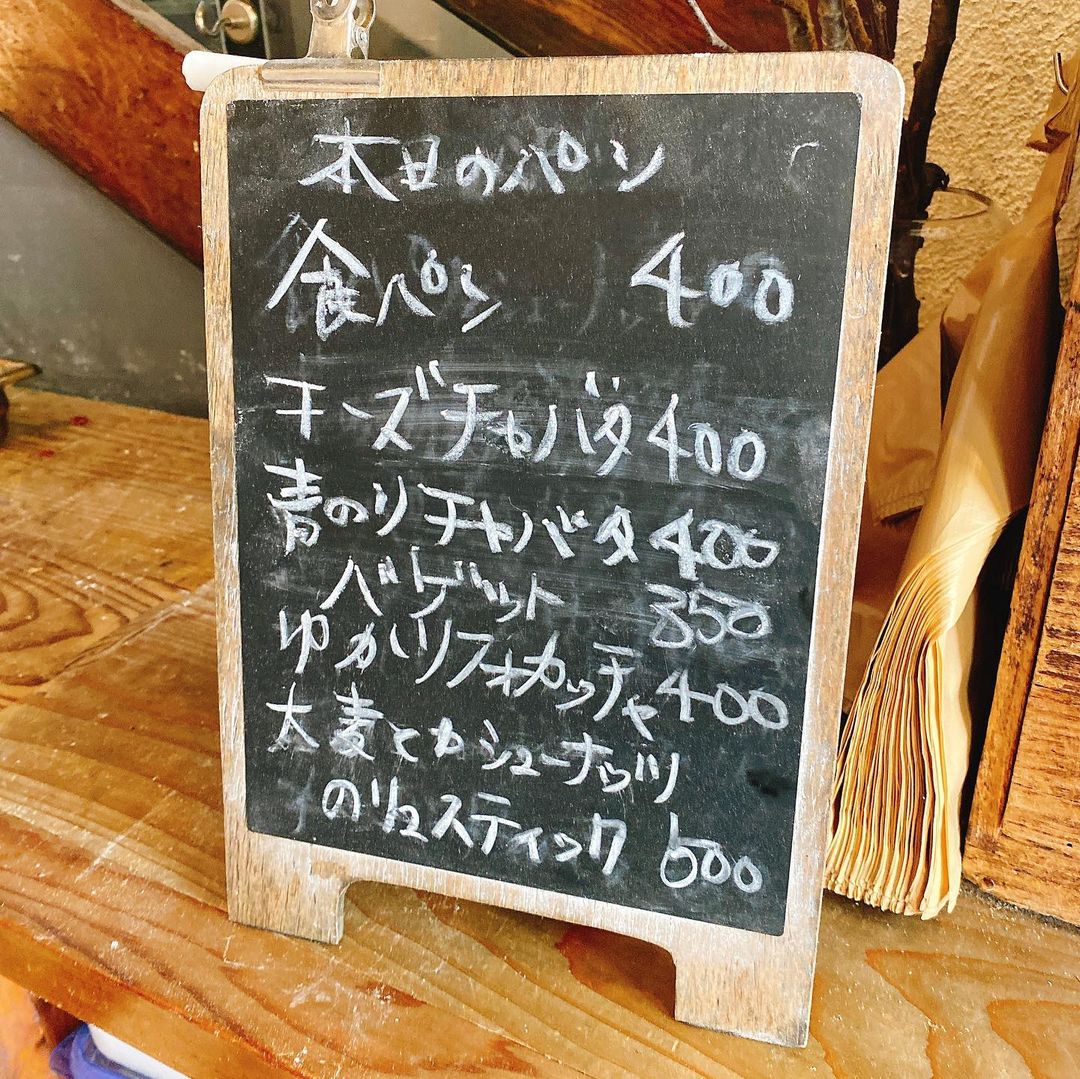 本日のパン
食パン 400
チーズチャバタ 400
青のりチャバタ 400
バゲット 350
ゆかりフォカッチャ 400
大麦とカシューナッツ
のスティック 600